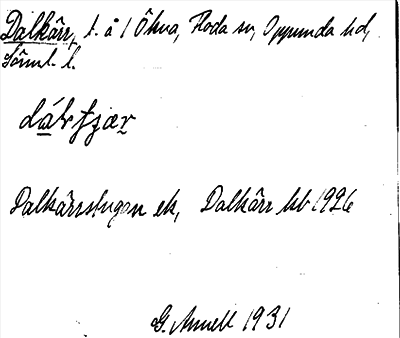 Dalkärr, t. å 1 Ökna, Floda sn, Oppunda hd,
Södml. l.
Dalkärrstugan ek, Dalkärr kb 1926
G. Annell 1931